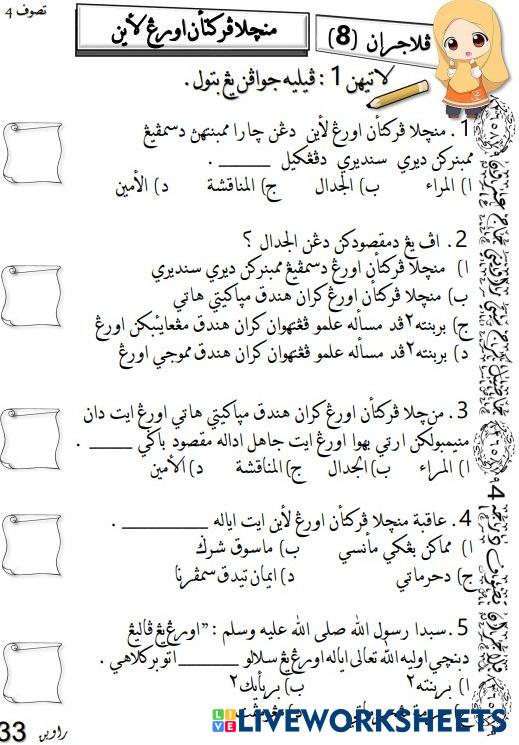 تصوف 4
ڤلاجران (8)
منچلا ڤركتأن اورڠ لأين
لاتيهن 1 : ڤيليه جواڤن يڠ بتول.
1. منچلا ڤركتأن اورڠ لأين دڠن چارا ممبنتهن دسمڤيڠ
ممبنركن ديري سنديري دڤڠكيل _____ .
ا) المراء ب) الجدال ج) المناقشة د) الأمين
2. اڤ يڠ دمقصودكن دڠن الجدال ؟
ا) منچلا ڤركتأن اورڠ دسمڤيڠ ممبنركن ديري سنديري
ب) منچلا ڤركتأن اورڠ كران هندق مپاكيتي هاتي
ج) بربنته٢ ڤد مسأله علمو ڤڠتهوان كران هندق مڠعايبكن اورڠ
د) بربنته٢ ڤد مسأله علمو ڤڠتهوان كران هندق مموجي اورڠ
3. منچلا ڤركتأن اورڠ كران هندق مپاكيتي هاتي اورڠ ايت دان
منيمبولكن ارتي بهوا اورڠ ايت جاهل اداله مقصود باكي _____ .
ا) المراء ب) الجدال ج) المناقشة د) الأمين
4. عاقبة منچلا ڤركتأن اورڠ لأين ايت اياله _________ .
ا) مماكن بڠكي مأنسي ب) ماسوق شرك
ج) دحرماتي د) ايمان تيدق سمڤرنا
5. سبدا رسول الله صلى الله عليه وسلم : "اورڠ يڠ ڤاليڠ
دبنچي اوليه الله تعالى اياله اورڠ يڠ سلالو _______ اتو بركلاهي .
ا) بربنته٢ ب) بربأيك٢
LIVEWORKSHEETS
راوين 33